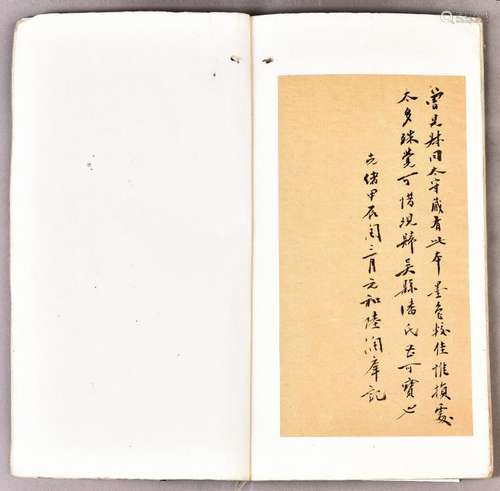 曾見同太守藏有此本墨色較佳惟損處
太多殊覺可惜現歸吳縣潘氏可寶也
光緒甲辰閏三月元和陸潤庠記